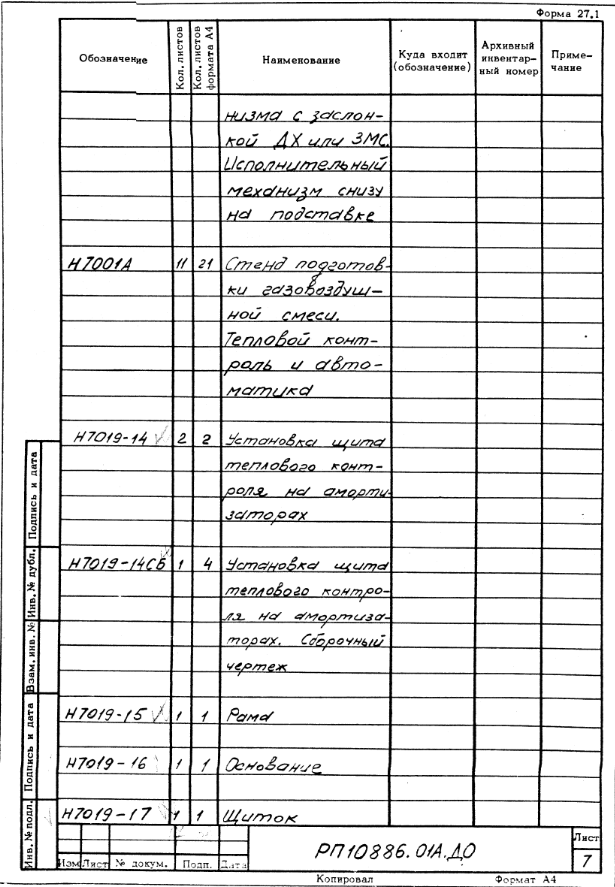 Форма 27.1
Обозначение Кол. листов Кол. листов формата А4 Наименование Куда входит (обозначение) Архивный инвентарный номер Приме-чание
низма с заслон-
кой ДХ или ЗМС.
Исполнительный
механизм снизу
на подставке
Н7001А 11 21 Стенд подготов-
ки газовоздуш-
ной смеси.
Тепловой конт-
роль и авто-
матика
Н7019-14 2 2 Установка щита
теплового конт-
роля на аморти-
заторах
Н7019-14СБ 1 4 Установка щита
теплового контро-
ля на амортиза-
торах. Сборочный
чертеж
Н7019-15 1 1 Рама
Н7019-16 1 1 Основание
Н7019-17 1 1 Щиток
Подпись и дата
Инв. № дубл.
Взам. инв. №
Подпись и дата
Инв. № подл.
Изм Лист № докум. Подп. Дата
РП10886.01А.ДО
Лист
7
Копировал Формат А4